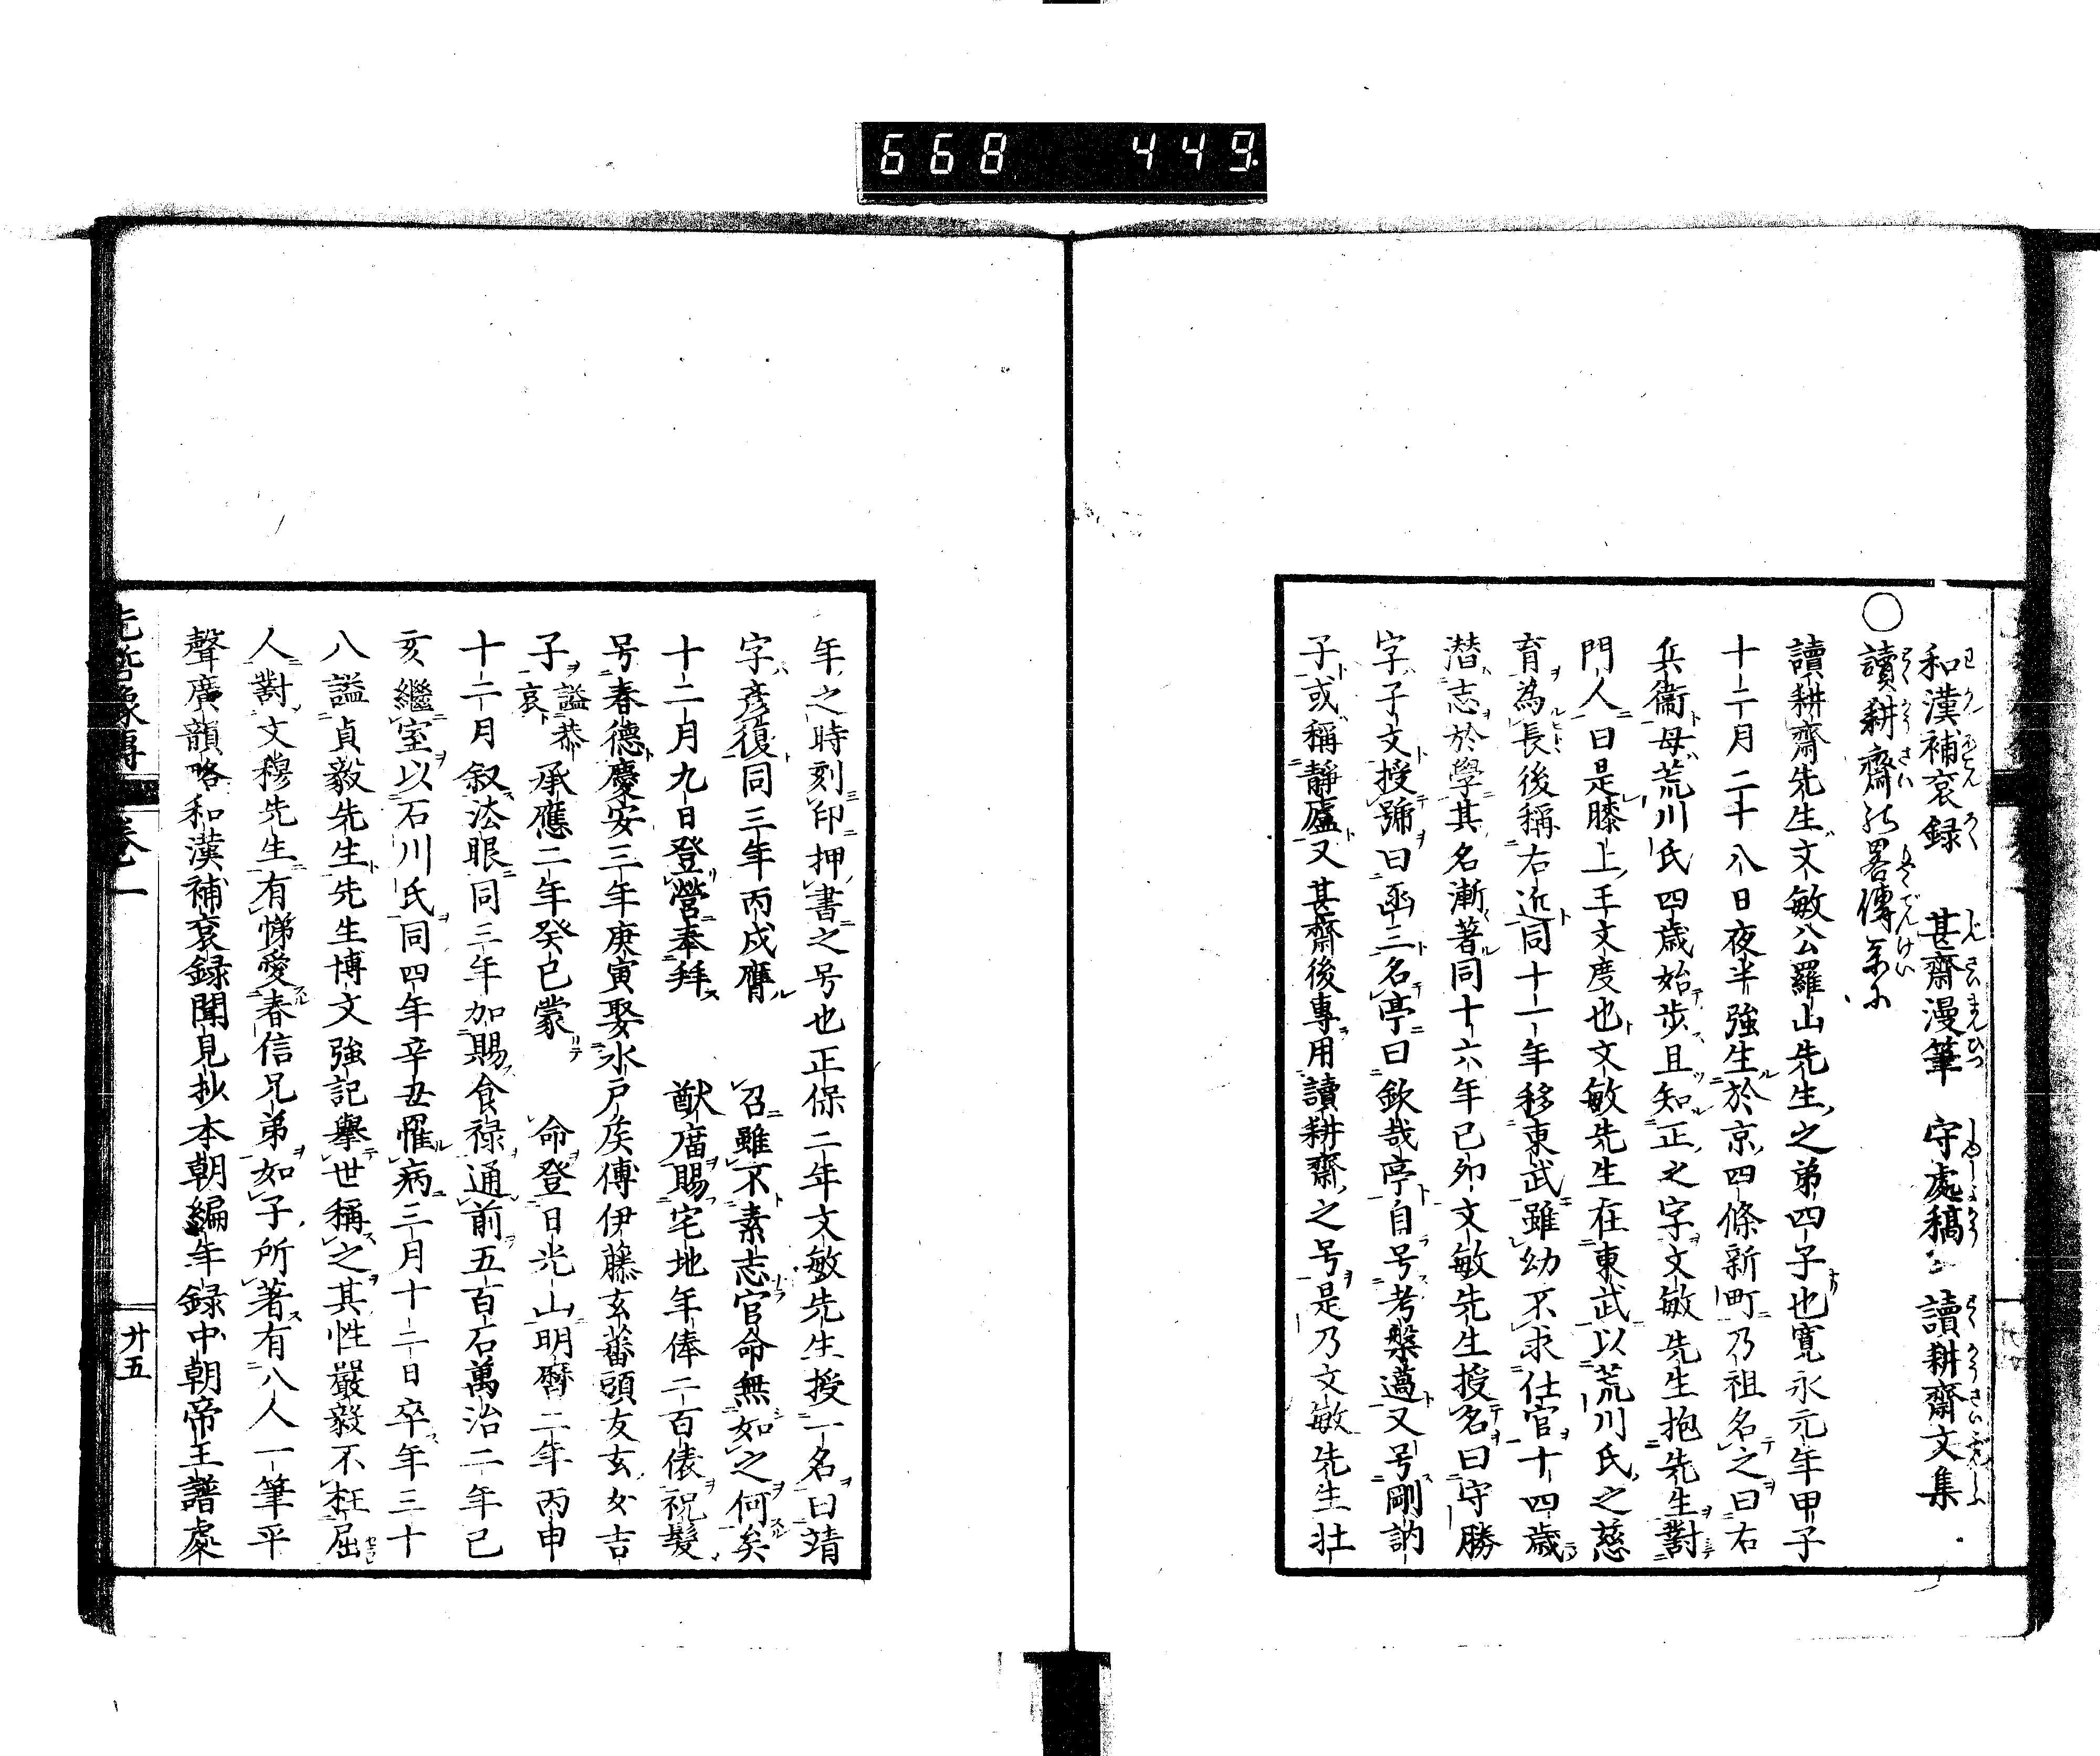 668 449
和漢補袞録 甚齋漫筆 守處稿 讀耕齋文集
○讀耕齋の畧傳系に
讀耕齋先生文敏公羅山先生之弟四子也寛永元年甲子
十二月二十八日夜半強生於京四條新町乃祖名之曰右
兵衞母荒川氏四歳始歩且知正之字文敏先生抱先生對
門人曰是膝上王文度也文敏先生在東武以荒川氏之慈
育為長後稱右近同十一年移東武雖幼不求仕官十四歳
潜志於學其名漸著同十六年己卯文敏先生授名曰守勝
字子文授號曰函三名亭曰欽哉亭自号考槃薖又号剛訥
子或稱靜廬又甚齋後專用讀耕齋之号是乃文敏先生壮
年之時刻印押書之号也正保二年文敏先生授一名曰靖
字彦復同三年丙戌膺 召雖不素志官命無如之何矣
十二月九日登營奉拜 猷庿賜宅地年俸二百俵祝髮
号春德慶安三年庚寅娶水戸矦傅伊藤玄蕃頭友玄女吉
子謚恭哀承應二年癸巳蒙 命登日光山明曆二年丙申
十二月叙法眼同三年加賜食禄通前五百石萬治二年己
亥繼室以石川氏同四年辛丑罹病三月十二日卒年三十
八謚貞毅先生先生博文強記擧世稱之其性嚴毅不枉屈
人對文穆先生有悌愛春信兄弟如子所著有八人一筆平
聲廣韻略和漢補袞録聞見抄本朝編年録中朝帝王譜處
先哲像傳 卷一 廿五